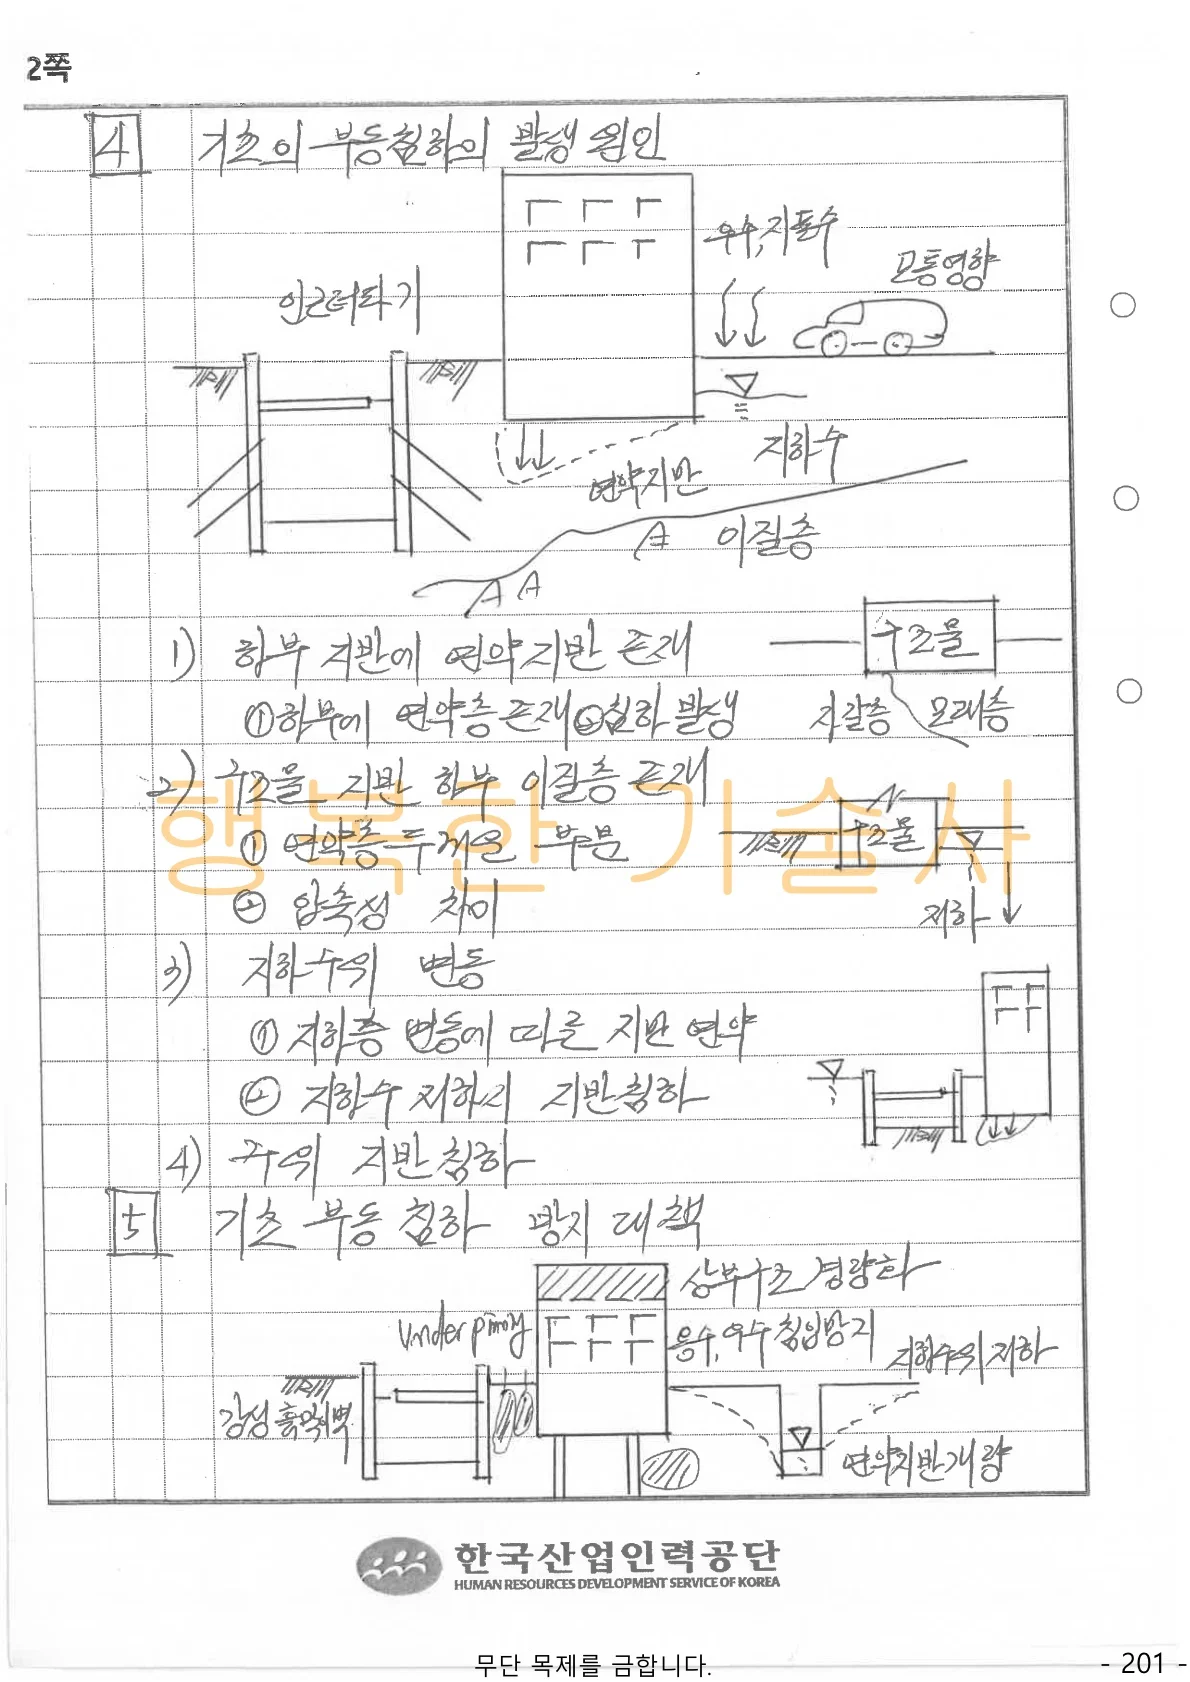 2쪽
4 기초의 부등침하의 발생 원인
우수, 지표수
교통영향
인근터파기
지하수
연약지반
이질층
1) 하부 지반에 연약지반 존재
구조물
① 하부에 연약층 존재 ② 침하 발생
자갈층 모래층
2) 구조물 지반 하부 이질층 존재
행복한 기술사
① 연약층 두께 다른 부분
구조물
② 압축성 차이
저하
3) 지하수위 변동
① 지하층 변동에 따른 지반 연약
② 지하수 저하시 지반침하
4) 주위 지반침하
5 기초 부등 침하 방지 대책
상부구조 경량화
underpinning
용수, 우수 침입방지
지하수위 저하
강성 흙막이벽
연약지반개량
한국산업인력공단
HUMAN RESOURCES DEVELOPMENT SERVICE OF KOREA
무단 목제를 금합니다.
- 201 -